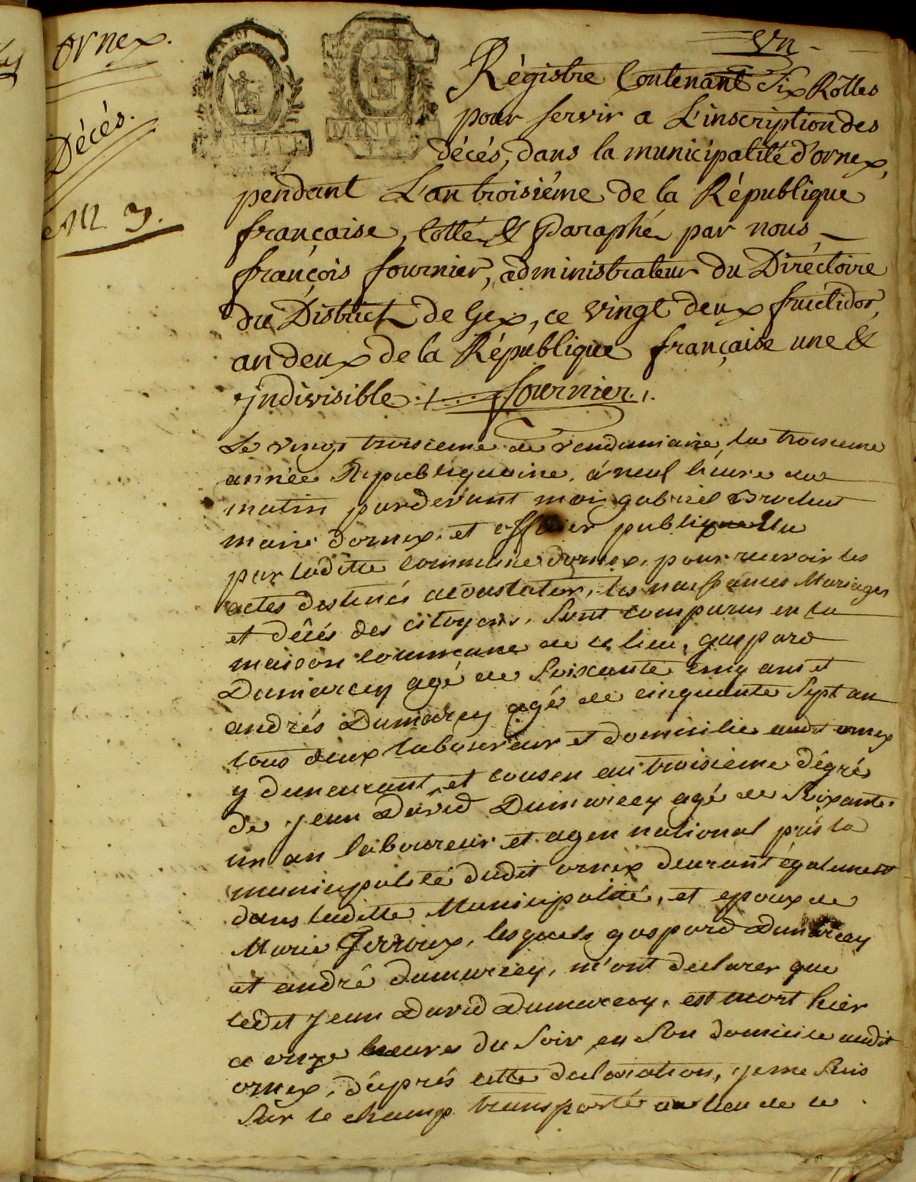 Ornex.
Décés.
an 3.
un
Régistre Contenant Six Rolles
pour servir a L'inscription des
décés, dans la municipalité d'ornex,
péndant L'an troisiéme de la République
française, Cotté & Paraphé par nous
françois fournier, administrateur du Diréctoire
du District de Gex, ce vingt deux fructidor,
an deux de la République française une &
jndivisible ./. fournier ./.
Le vingt troisieme de Vendemiaire la troisieme
année Republiquaine, à neuf heure du
matin pardevant moi gabriel
maire dornex, et officier publique élu
par laditte commune dornex, pour recevoir les
actes destinés a constater, les naissances Mariages
et décés des citoyens, Sont comparus en la
maison commune de ce lieu, gaspard
Dumarcey agé de Soixante cinq ans et
andrés Dumarcey agé de cinquante Sept an
tous deux laboureur et domicilie audit ornex
y demeurant, et cousen au troisieme dégré
de jean David Dumarcey agé de Soixante
un an laboureur et agen national prés la
municipalité dudit ornex demeurant également
dans laditte Municipalité, et epoux de
Marie Perroux, lesquels gaspard Dumarcey
et andré dumarcey, m'ont declarer que
ledit jean David Dumarcey, est mort hier
a onze heures du Soir en Son domicile audit
ornex, d'aprés cette declaration, je me Suis
Sur le champ transporté au lieu de ce